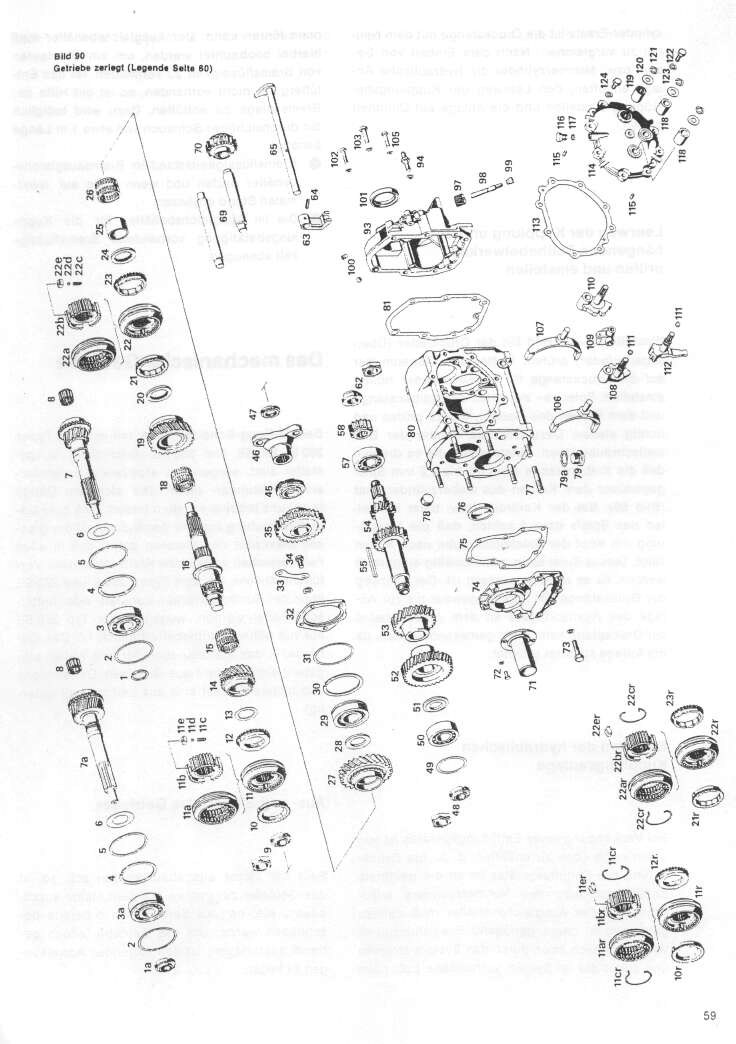 Bild 90
Getriebe zerlegt (Legende Seite 60)
26
25
24
23
22e
22d
22c
22b
22a
22
21
20
19
18
8
7
6
5
4
3
2
8
7a
6
5
4
3a
2
1a
16
15
14
13
12
11e
11d
11c
11b
11a
11
10
9
70
69
65
64
63
47
46
45
35
34
33
32
31
30
29
28
27
62
58
57
54
55
53
52
51
50
49
48
102
103
105
94
101
93
100
97
98
99
81
80
79a
79
78
77
76
75
74
73
72
71
124
119
120
121
122
123
118
118
116
117
115
114
115
113
110
107
109
111
108
111
112
106
22cr
22er
22br
22ar
22cr
23r
22r
21r
11cr
11er
11br
11ar
11cr
12r
11r
10r
59